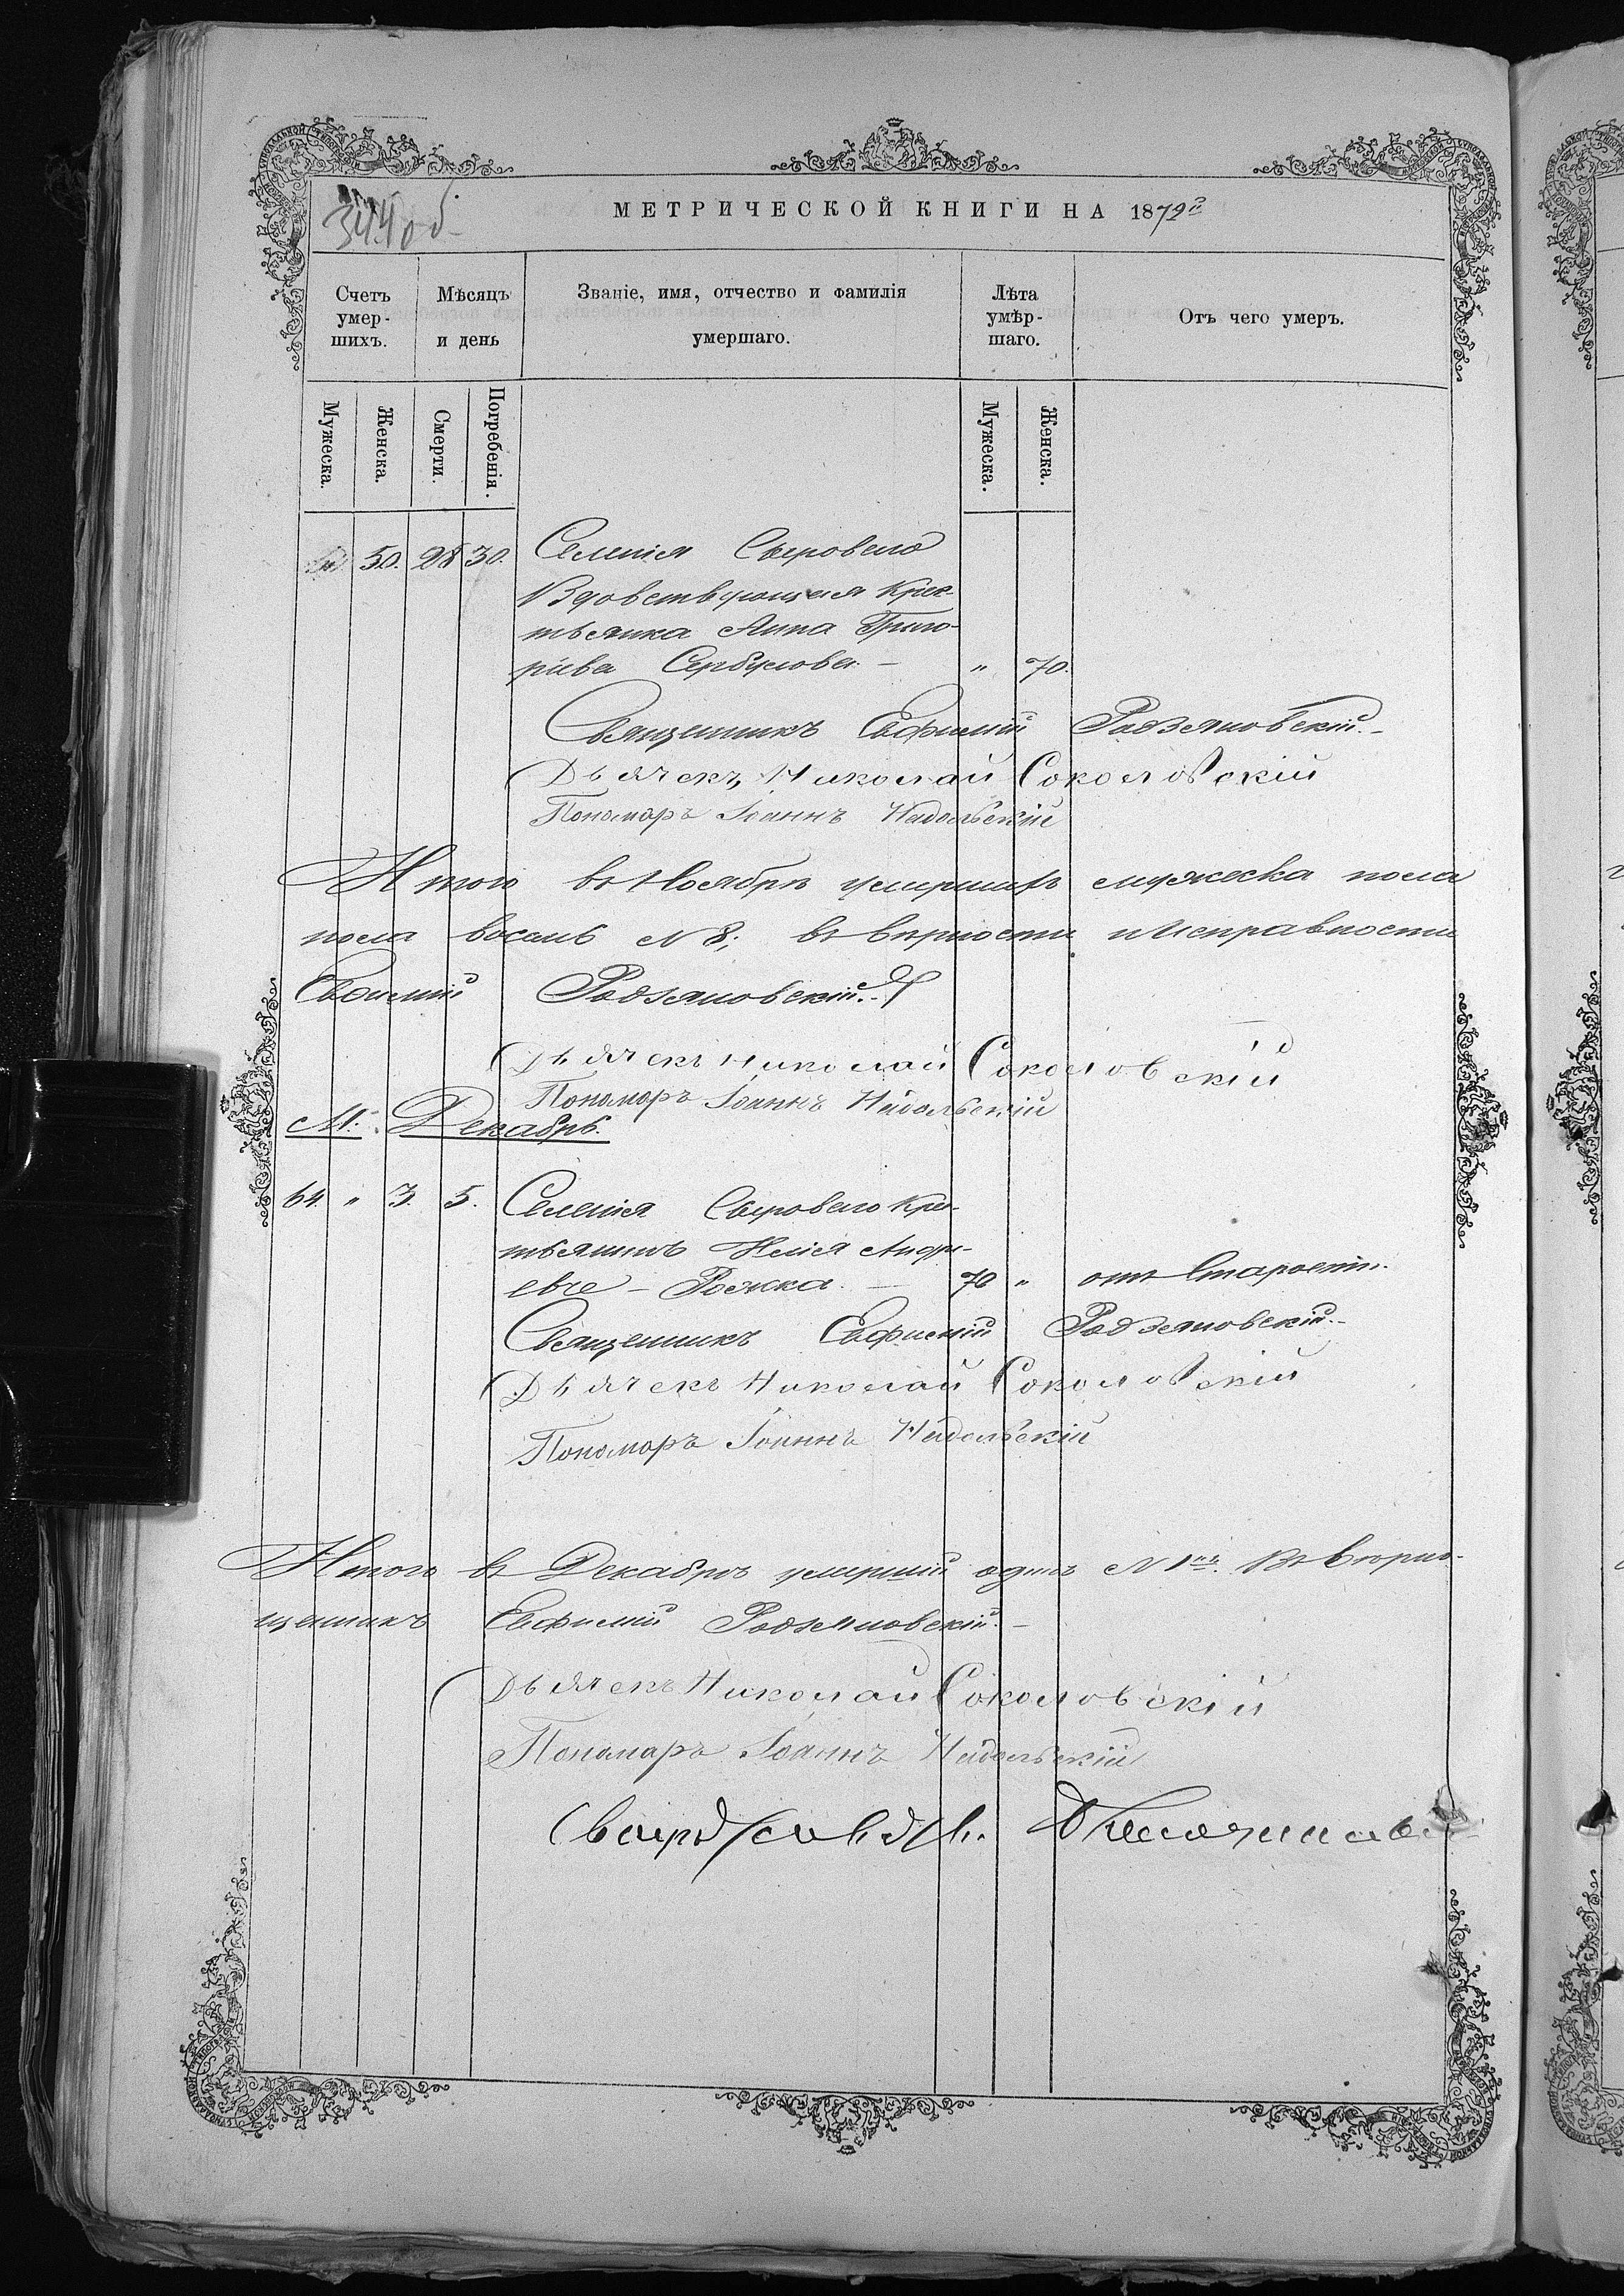 344 об
МЕТРИЧЕСКОЙ КНИГИ НА 1879й
Счетъ умер-шихъ.
Мѣсяцъ и день
Званіе, имя, отчество и фамилія умершаго.
Лѣта умѣр-шаго.
Отъ чего умеръ.
Мужеска. Женска. Смерти. Погребенія. Мужеска. Женска.
50. 28 30. Селенія Сыровего
Вдовствующая Крес
тьянка Анна Григо-
ріева Сербулова — „ 70.
Священникъ Евфимій Родзяновскій.
Дьячекъ Николай Соколовскій
Пономаръ Іоаннъ Надольскій
Итого въ Ноябрѣ умершихъ мужеска пола
пола восемь N 8; въ вѣрности и Исправности
Евфимій Родзяновскій.
Дьячекъ Николай Соколовскій
Пономаръ Іоаннъ Надольскій
М. Декабрь.
64. „ 3. 5. Селенія Сыровего Кре-
тьянинъ Илія Андре-
евъ — Рожка. — 70 „ отъ Старости.
Священникъ Евфимій Родзяновскій.
Дьячекъ Николай Соколовскій
Пономаръ Іоаннъ Надольскій
Итого въ Декабрѣ умершій одинъ N 1нъ. Въ вѣрно-
щенникъ Евфимій Родзяновскій.
Дьячекъ Николай Соколовскій
Пономаръ Іоаннъ Надольскій